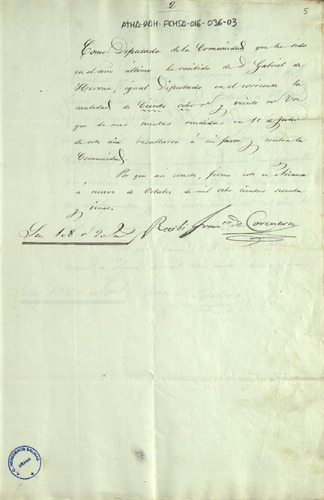 2
5
ATHA-DDH-FCHSA-016-036-03
Como Diputado de la Comunidad que he sido
en el año último he recibido de Gabriel de
Herran, igual Diputado en el corriente la
cantidad de Ciento ocho rs y veinte ms Von
que de mis cuentas rendidas en 11 de Junio
de este año resultaron á mi favor y contra la
Comunidad.
Por que asi conste, firmo esta en Añana
á nueve de Octubre de mil ocho cientos cuenta
y cinco.
Son 108 rs 20 ms
Recibí Franco de
AÑANA